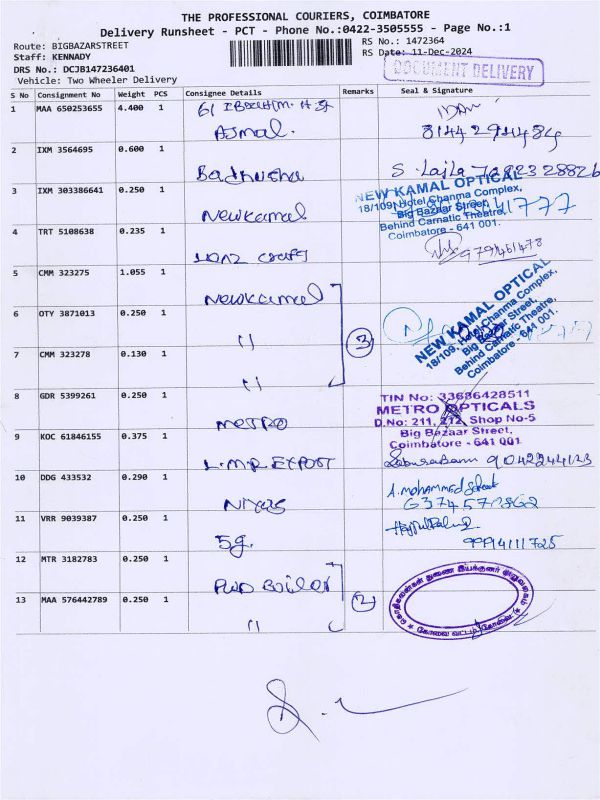 THE PROFESSIONAL COURIERS, COIMBATORE
Delivery Runsheet - PCT - Phone No.:0422-3505555 - Page No.:1
Route: BIGBAZARSTREET
RS No.: 1472364
Staff: KENNADY
RS Date: 11-Dec-2024
DRS No.: DCJB147236401
DOCUMENT DELIVERY
Vehicle: Two Wheeler Delivery
S No Consignment No Weight PCS Consignee Details Remarks Seal & Signature
1 MAA 650253655 4.400 1 61
Ajmal.
2 IXM 3564695 0.600 1 Badhusha
S. Lajla
3 IXM 303386641 0.250 1 Newkamal
NEW KAMAL OPTICAL
18/109, Hotel Chanma Complex,
Big Bazaar Street,
Behind Carnatic Theatre,
Coimbatore - 641 001.
4 TRT 5108638 0.235 1
9791461478
5 CMM 323275 1.055 1 Newkamal
6 OTY 3871013 0.250 1 "
3
7 CMM 323278 0.130 1 "
NEW KAMAL OPTICAL
18/109, Hotel Chanma Complex,
Big Bazaar Street,
Behind Carnatic Theatre,
Coimbatore - 641 001.
8 GDR 5399261 0.250 1 METRO
TIN No: 33686428511
METRO OPTICALS
D.No: 211, 212, Shop No-5
Big Bazaar Street,
Coimbatore - 641 001
9 KOC 61846155 0.375 1 L.M.R EXPOST
9042244123
10 DDG 433532 0.290 1 Niyas
A. mohammed
11 VRR 9039387 0.250 1 5g.
9994111725
12 MTR 3182783 0.250 1 PWD Boiler
13 MAA 576442789 0.250 1 "
2
கொதிகலன்கள் துணை இயக்குனர் அலுவலகம்
கோவை வட்டம், கோவை